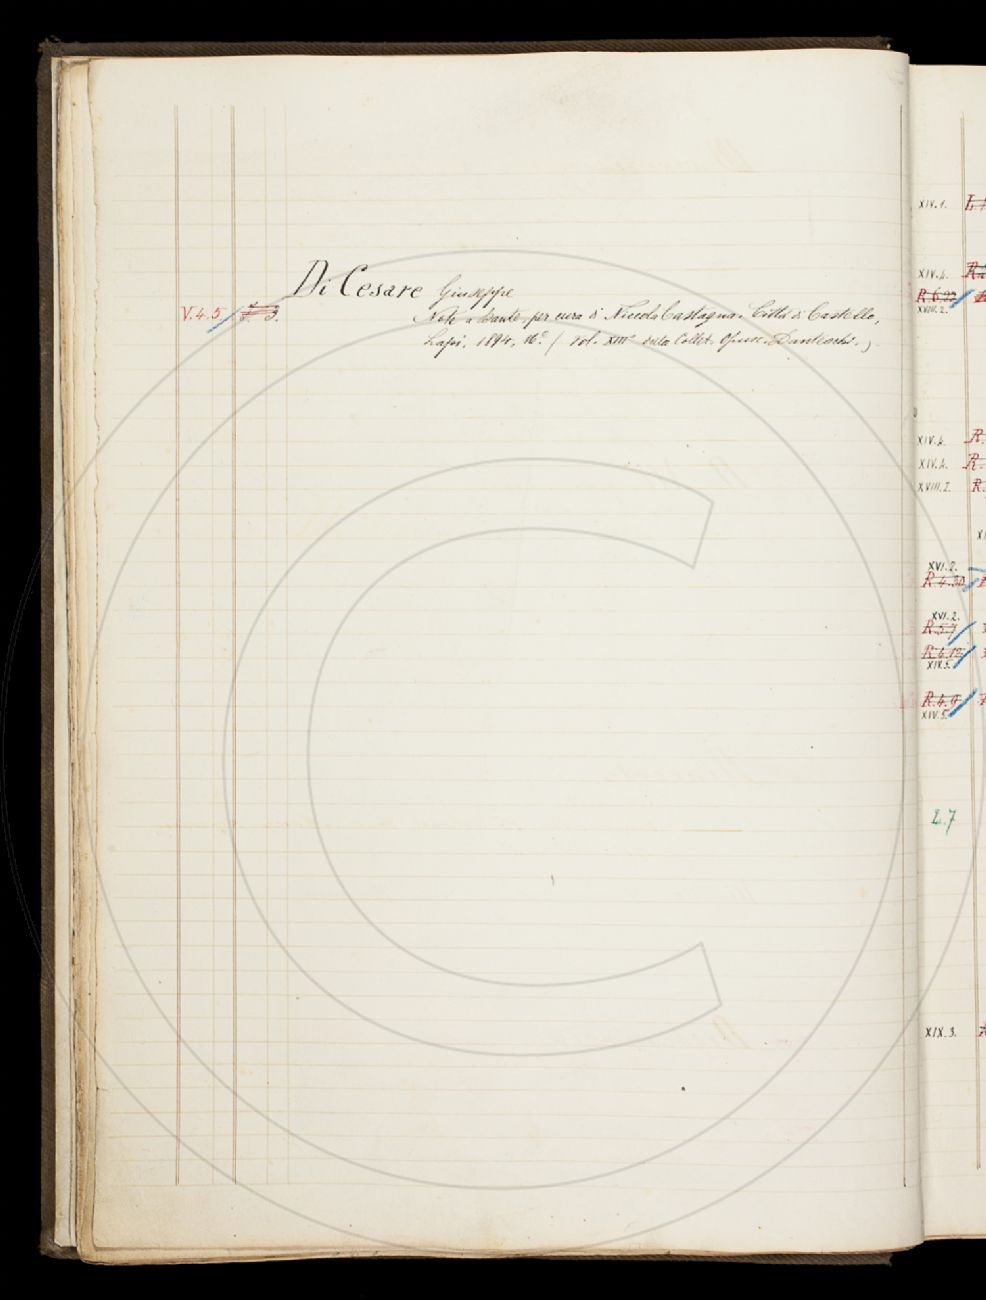 Di Cesare Giuseppe
V.4.5 / 3.
Note a Dante per cura di Niccola Castagna. Città di Castello,
Lapi, 1894, 16.° / vol. XIII° della Collez. Opusc. Danteschi.)
XIV.1.
XIV.4.
R 6.22
XVIII.2.
XIV.4. R.
XIV.4. R.
XVIII.2. R.
XVI.2.
R 4.30
XVI.2.
R 5.7
R 6.12
XIX.5.
R.4.9
XIV.5.
2.7
XIX.3.